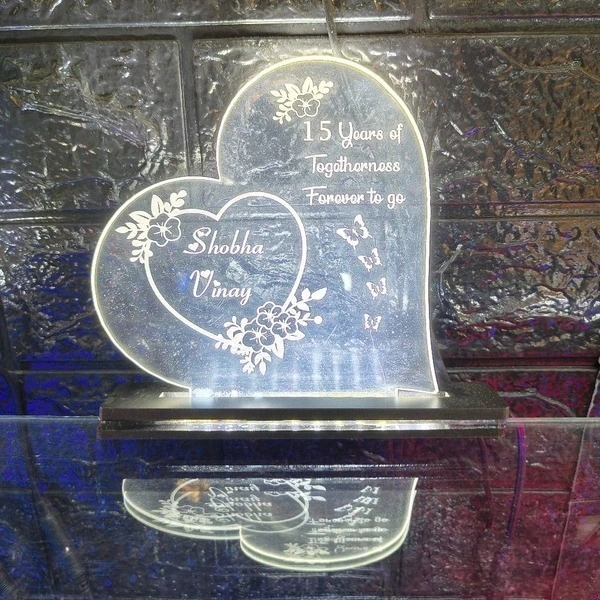 15 Years of
Togetherness
Forever to go
Shobha
Vinay